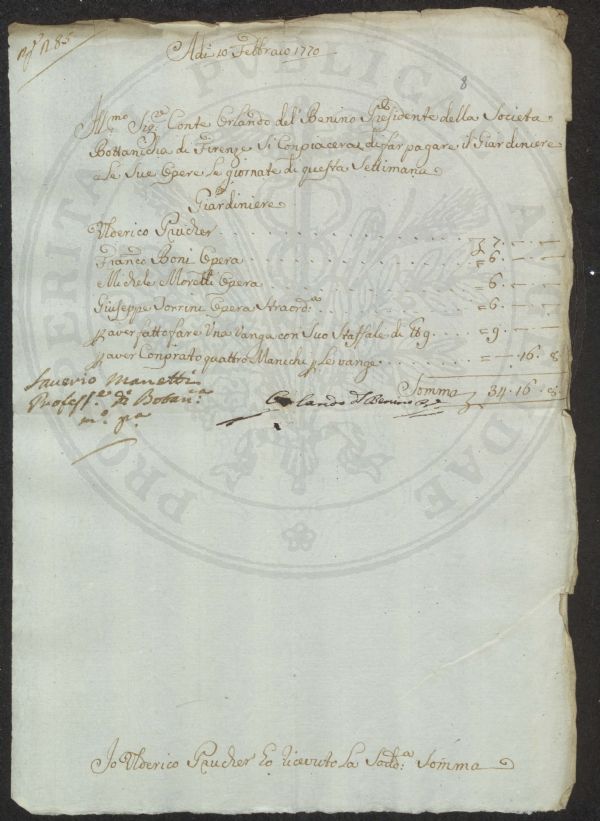 N.º 85
Adi 10 Febbraio 1770
8
Ill.mo Sig.re Conte Orlando del Benino Presidente della Societa
Bottanicha di Firenze Si Conpiacera di far pagare il Giardiniere
e le Sue Opere le giornate di questa Settimana
Giardiniere
Ulderico Prucher £ 7 . — . —
Franc.o Boni Opera = 6 . — . —
Michele Moretti Opera = 6 . — . —
Giuseppe Torrini Opera Straord.a = 6 . — . —
p aver fatto fare Una Vanga con Suo Staffale di 9 . = 9 . — . —
p aver Conprato quattro Manichi p le vange = — . 16 . 8
Somma 34 . 16 . 8
Saverio Manetti
Profess.e di Botan.ca
m.o p.a
Orlando del Benino
Io Ulderico Prucher ho ricevuto la Sod.a Somma
PRO VERITATE PUBLICAE AUGENDAE